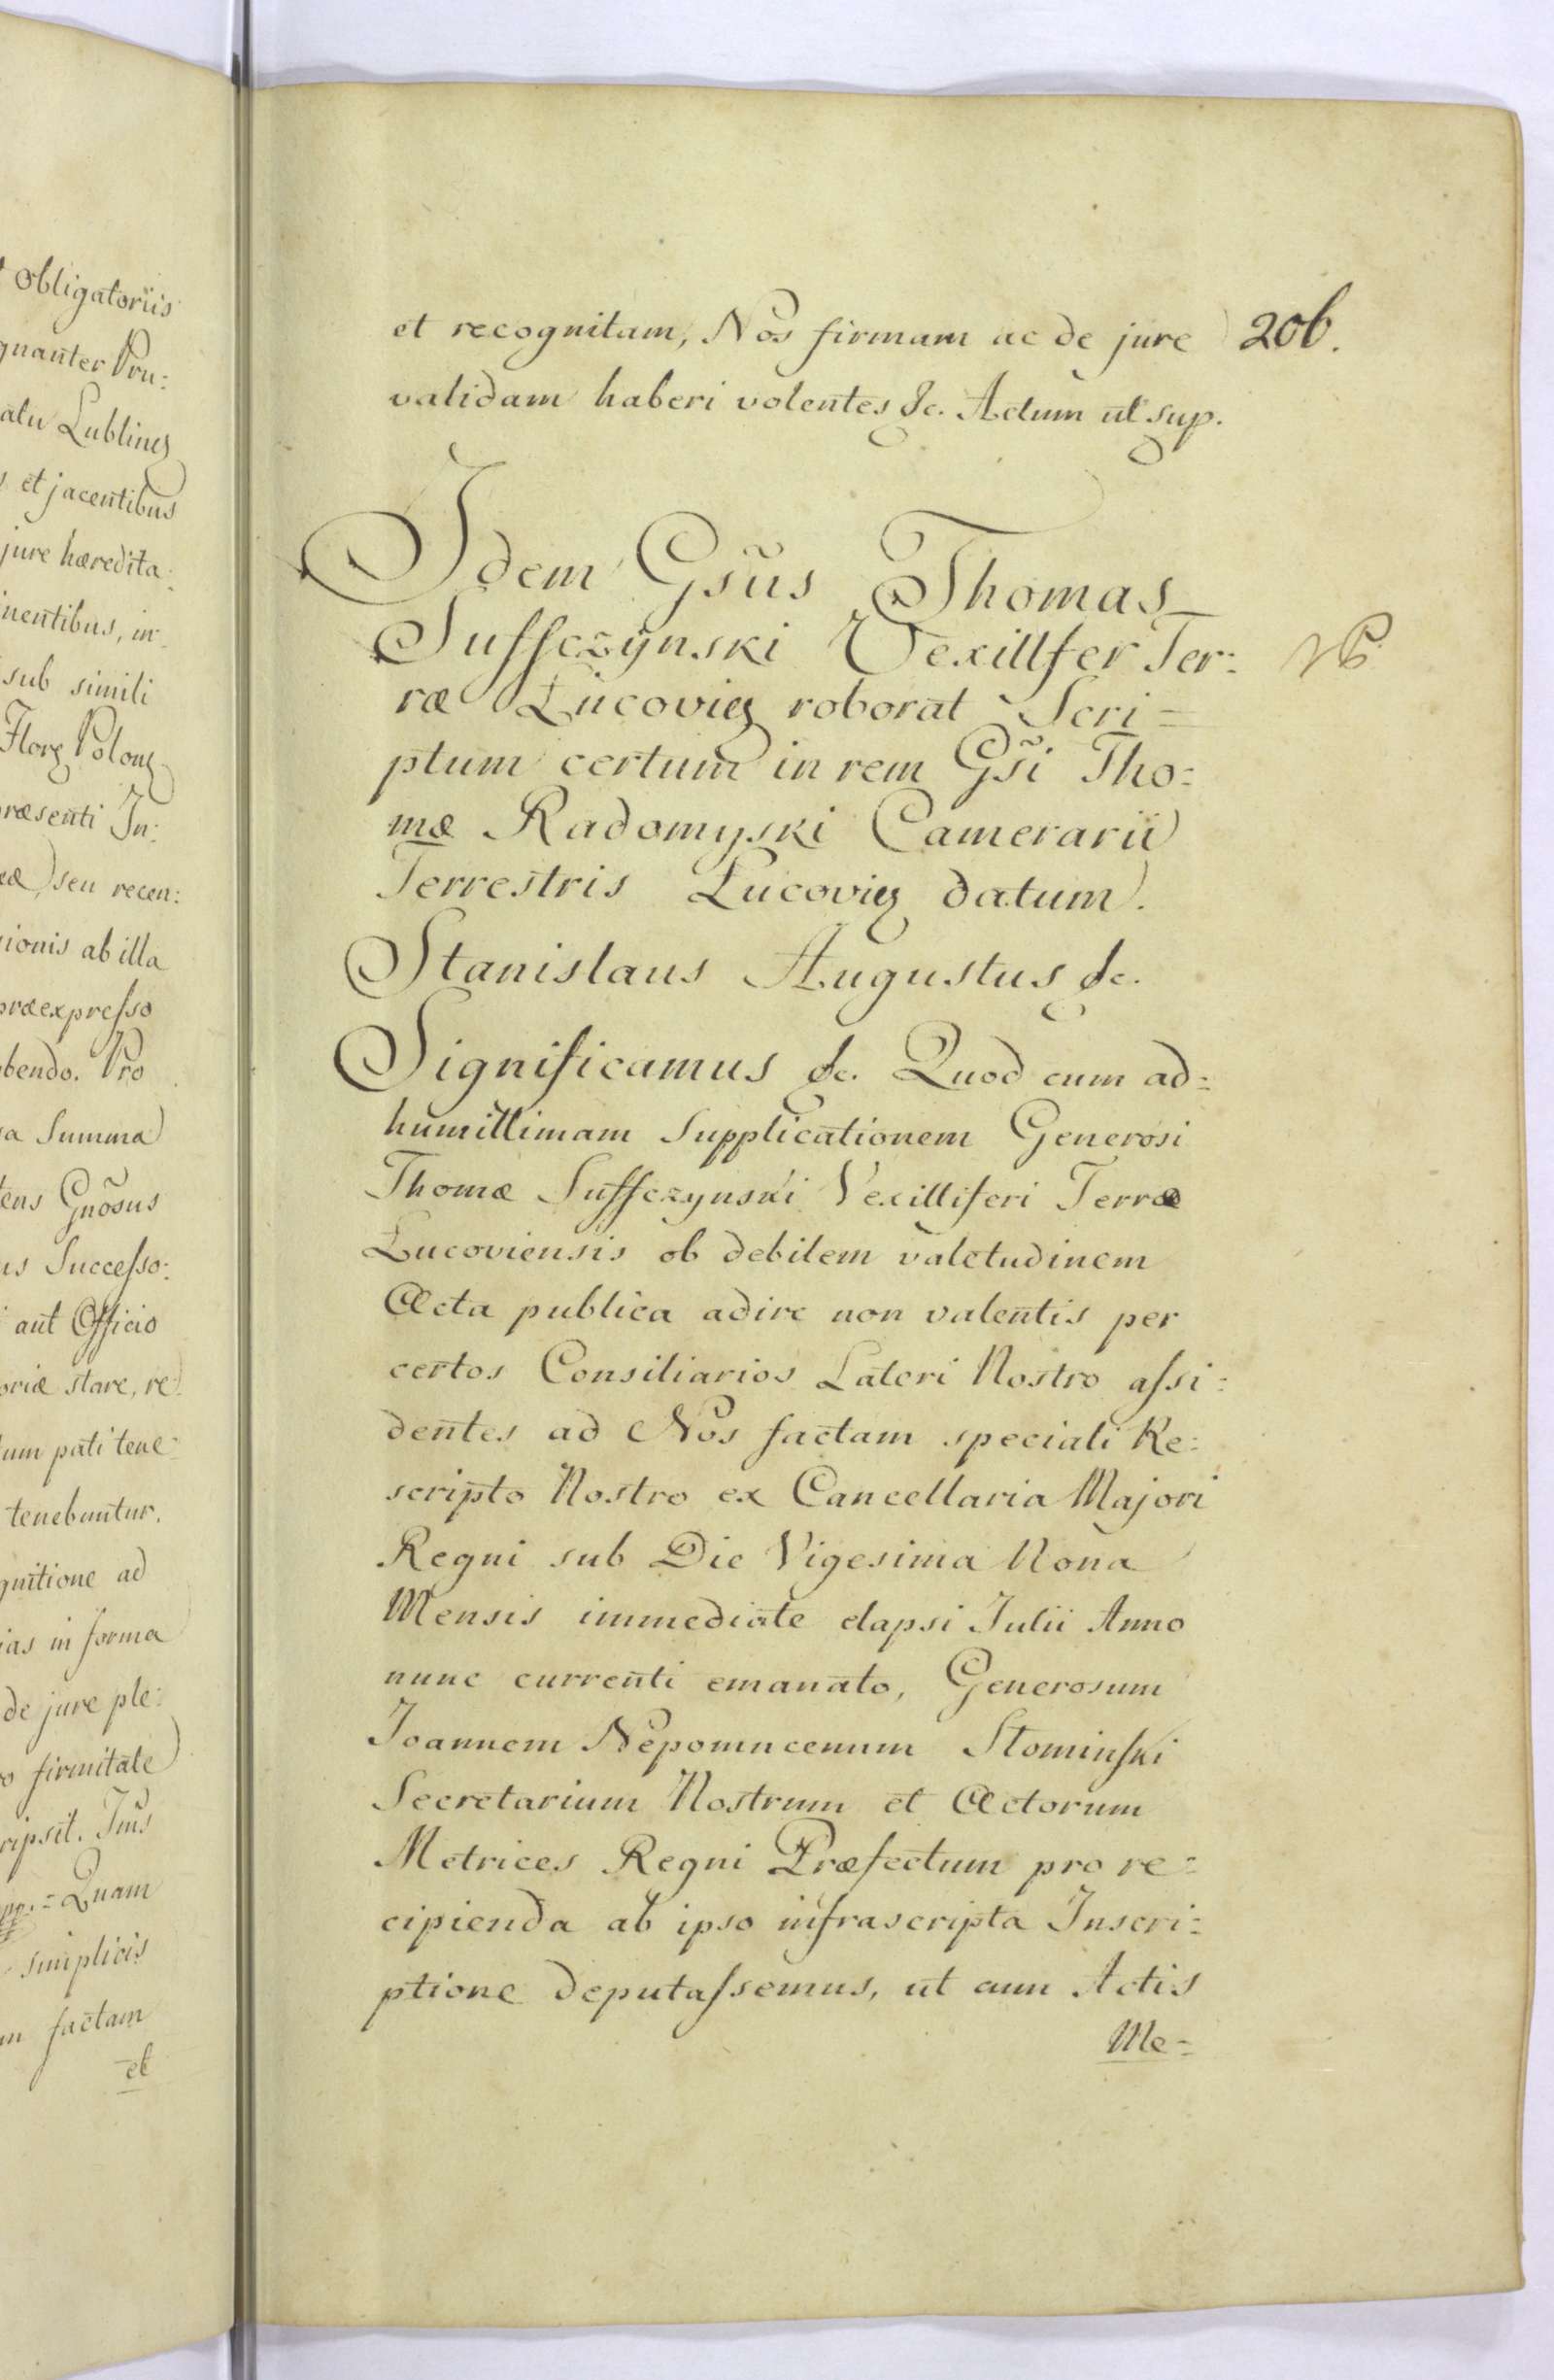 Obligatoriis
et jacentibus
jure hæredita:
nentibus, in
sub simili
ræsenti In:
seu recen:
ionis ab illa
præexpresso
bendo. Pro
Summa
Gnõsus
Successo:
aut Officio
stare, re
um pati tene
tenebuntur.
gnitione ad
in forma
de jure ple:
firmitate
Quam
simplicis
factam
et
et recognitam, Nos firmam ac de jure 206.
validam haberi volentes &c. Actum ut sup.
Idem Gsũs Thomas
Suffczynski Vexillfer Ter:
ræ Lucovieȝ roborat Scri=
ptum certum in rem Gsĩ Tho:
mæ Radomyski Camerarii
Terrestris Lucovieȝ datum.
Stanislaus Augustus &c.
Significamus &c. Quod cum ad=
humillimam Supplicationem Generosi
Thomæ Suffczynski Vexilliferi Terræ
Lucoviensis ob debilem valetudinem
Acta publica adire non valentis per
certos Consiliarios Lateri Nostro assi:
dentes ad Nos factam speciali Re:
scripto Nostro ex Cancellaria Majori
Regni sub Die Vigesima Nona
Mensis immediate elapsi Julii Anno
nunc currenti emanato, Generosum
Joannem Nepomucenum Słominski
Secretarium Nostrum et Actorum
Metrices Regni Præfectum pro re=
cipienda ab ipso infrascripta Inscri:
ptione deputassemus, ut cum Actis
Me=